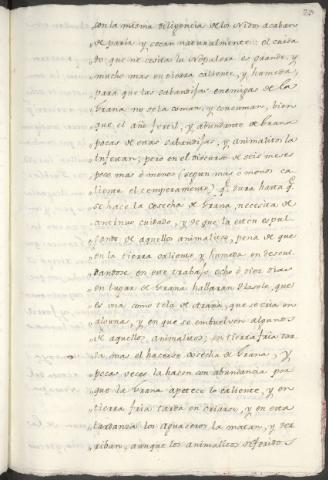 con la misma diligencia de los Nidos acaban
de parir, y cesan naturalmente: el cuida
do que necesita la Nopalera es grande, y
mucho mas en tierra caliente, y humeda,
para que las sabandijas enemigas de la
Grana no se la coman, y consuman, bien
que el año fertil, y abundante de grana
pocas de estas sabandijas, y animalitos la
infestan; pero en el discurso de seis meses
poco mas ó menos (segun mas ó menos ca
liente el temperamento) q.e dura hasta q.e
se hace la cosecha de Grana, necesita de
continuo cuidado, y de que la esten espul
gando de aquellos animalitos, pena de que
en la tierra caliente, y humeda en descui
dandose en este trabajo ocho ó diez dias
en lugar de Grana hallaran Tlasole, que
es una como tela de Araña, que se cria en
alguna, y en que se embuelven algunos
de aquellos animalitos; en tierra fria tar
da mas el hacerse cosecha de Grana, y
pocas veces la hacen con abundancia por
que la Grana apetece lo caliente, y en
tierra fria tarda en criarse, y en esta
tardanza los aguaceros la matan, y der
riban, aunque los animalitos referidos